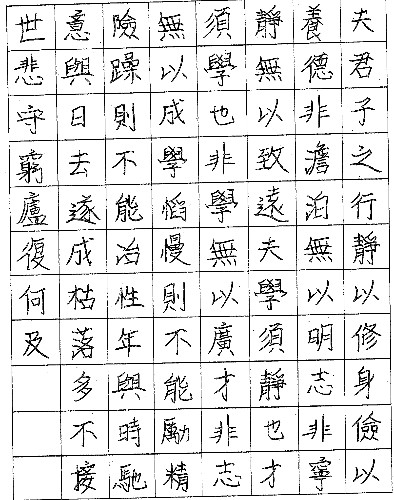 夫君子之行靜以修身儉以
養德非澹泊無以明志非寧
靜無以致遠夫學須靜也才
須學也非學無以廣才非志
無以成學慆慢則不能勵精
險躁則不能冶性年與時馳
意與日去遂成枯落多不接
世悲守窮廬復何及